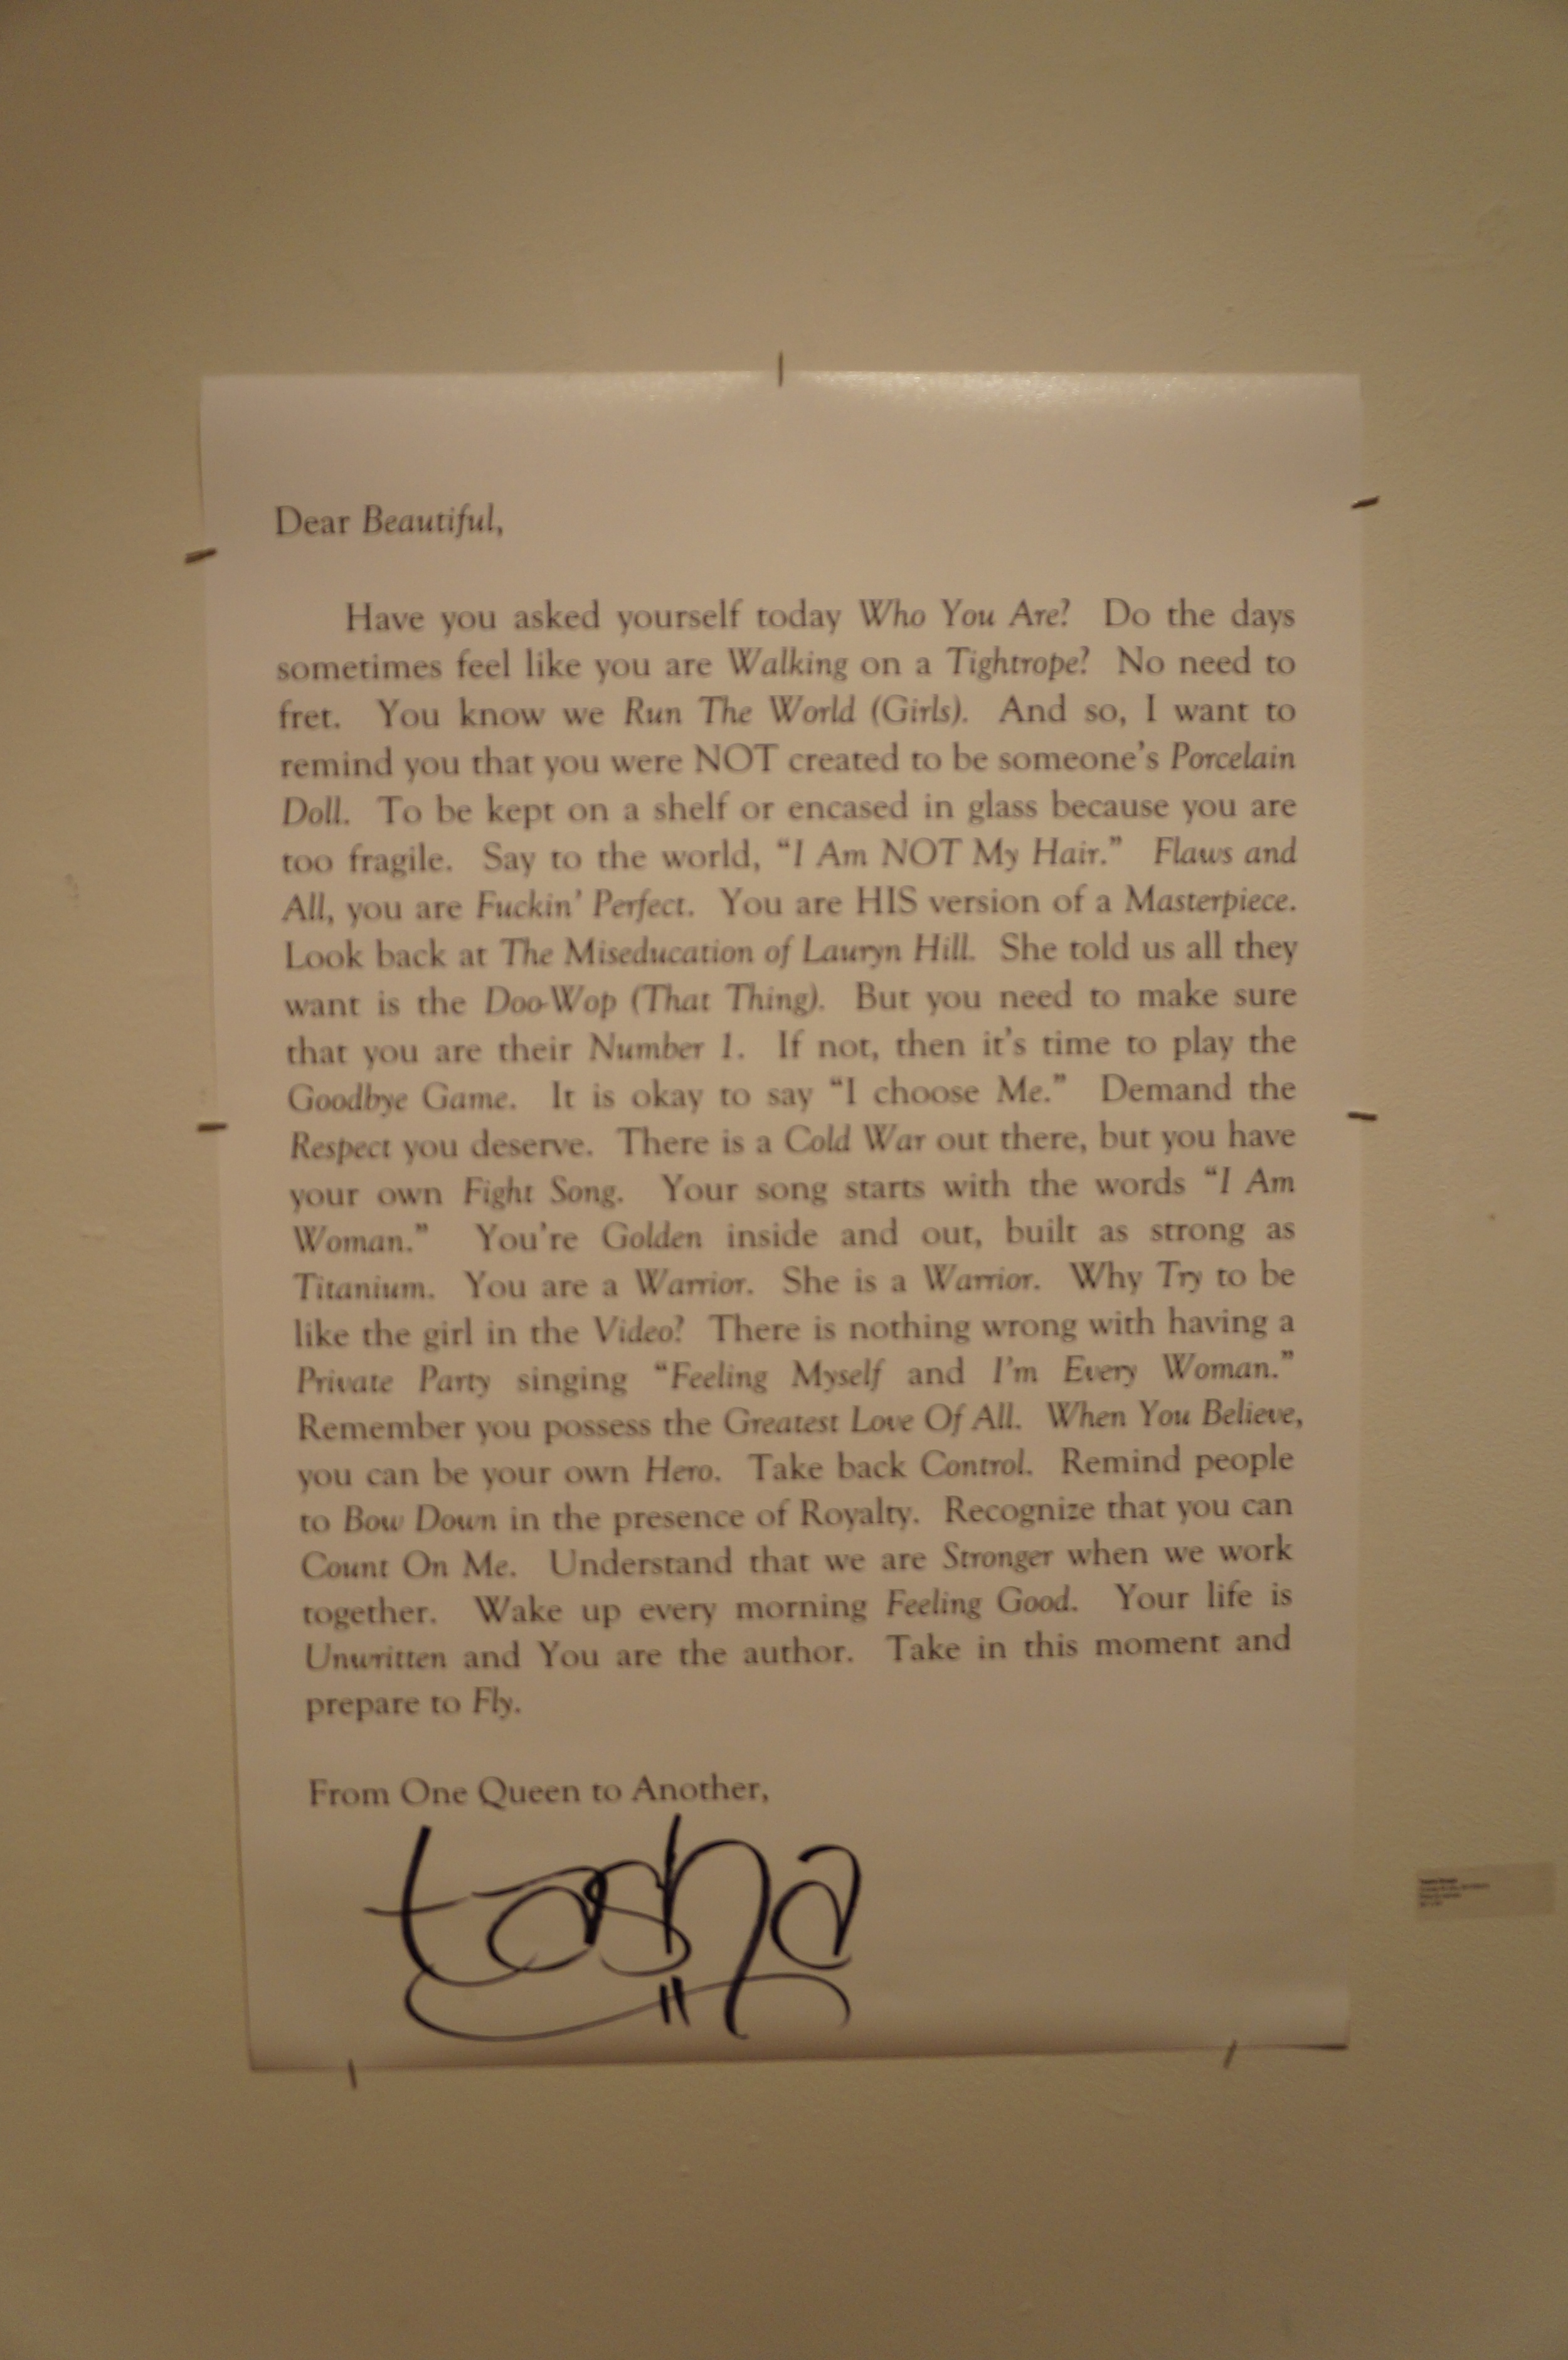 Dear Beautiful,
Have you asked yourself today Who You Are? Do the days
sometimes feel like you are Walking on a Tightrope? No need to
fret. You know we Run The World (Girls). And so, I want to
remind you that you were NOT created to be someone's Porcelain
Doll. To be kept on a shelf or encased in glass because you are
too fragile. Say to the world, “I Am NOT My Hair.” Flaws and
All, you are Fuckin’ Perfect. You are HIS version of a Masterpiece.
Look back at The Miseducation of Lauryn Hill. She told us all they
want is the Doo-Wop (That Thing). But you need to make sure
that you are their Number 1. If not, then it’s time to play the
Goodbye Game. It is okay to say “I choose Me.” Demand the
Respect you deserve. There is a Cold War out there, but you have
your own Fight Song. Your song starts with the words “I Am
Woman.” You’re Golden inside and out, built as strong as
Titanium. You are a Warrior. She is a Warrior. Why Try to be
like the girl in the Video? There is nothing wrong with having a
Private Party singing “Feeling Myself and I’m Every Woman.”
Remember you possess the Greatest Love Of All. When You Believe,
you can be your own Hero. Take back Control. Remind people
to Bow Down in the presence of Royalty. Recognize that you can
Count On Me. Understand that we are Stronger when we work
together. Wake up every morning Feeling Good. Your life is
Unwritten and You are the author. Take in this moment and
prepare to Fly.
From One Queen to Another,
tasha